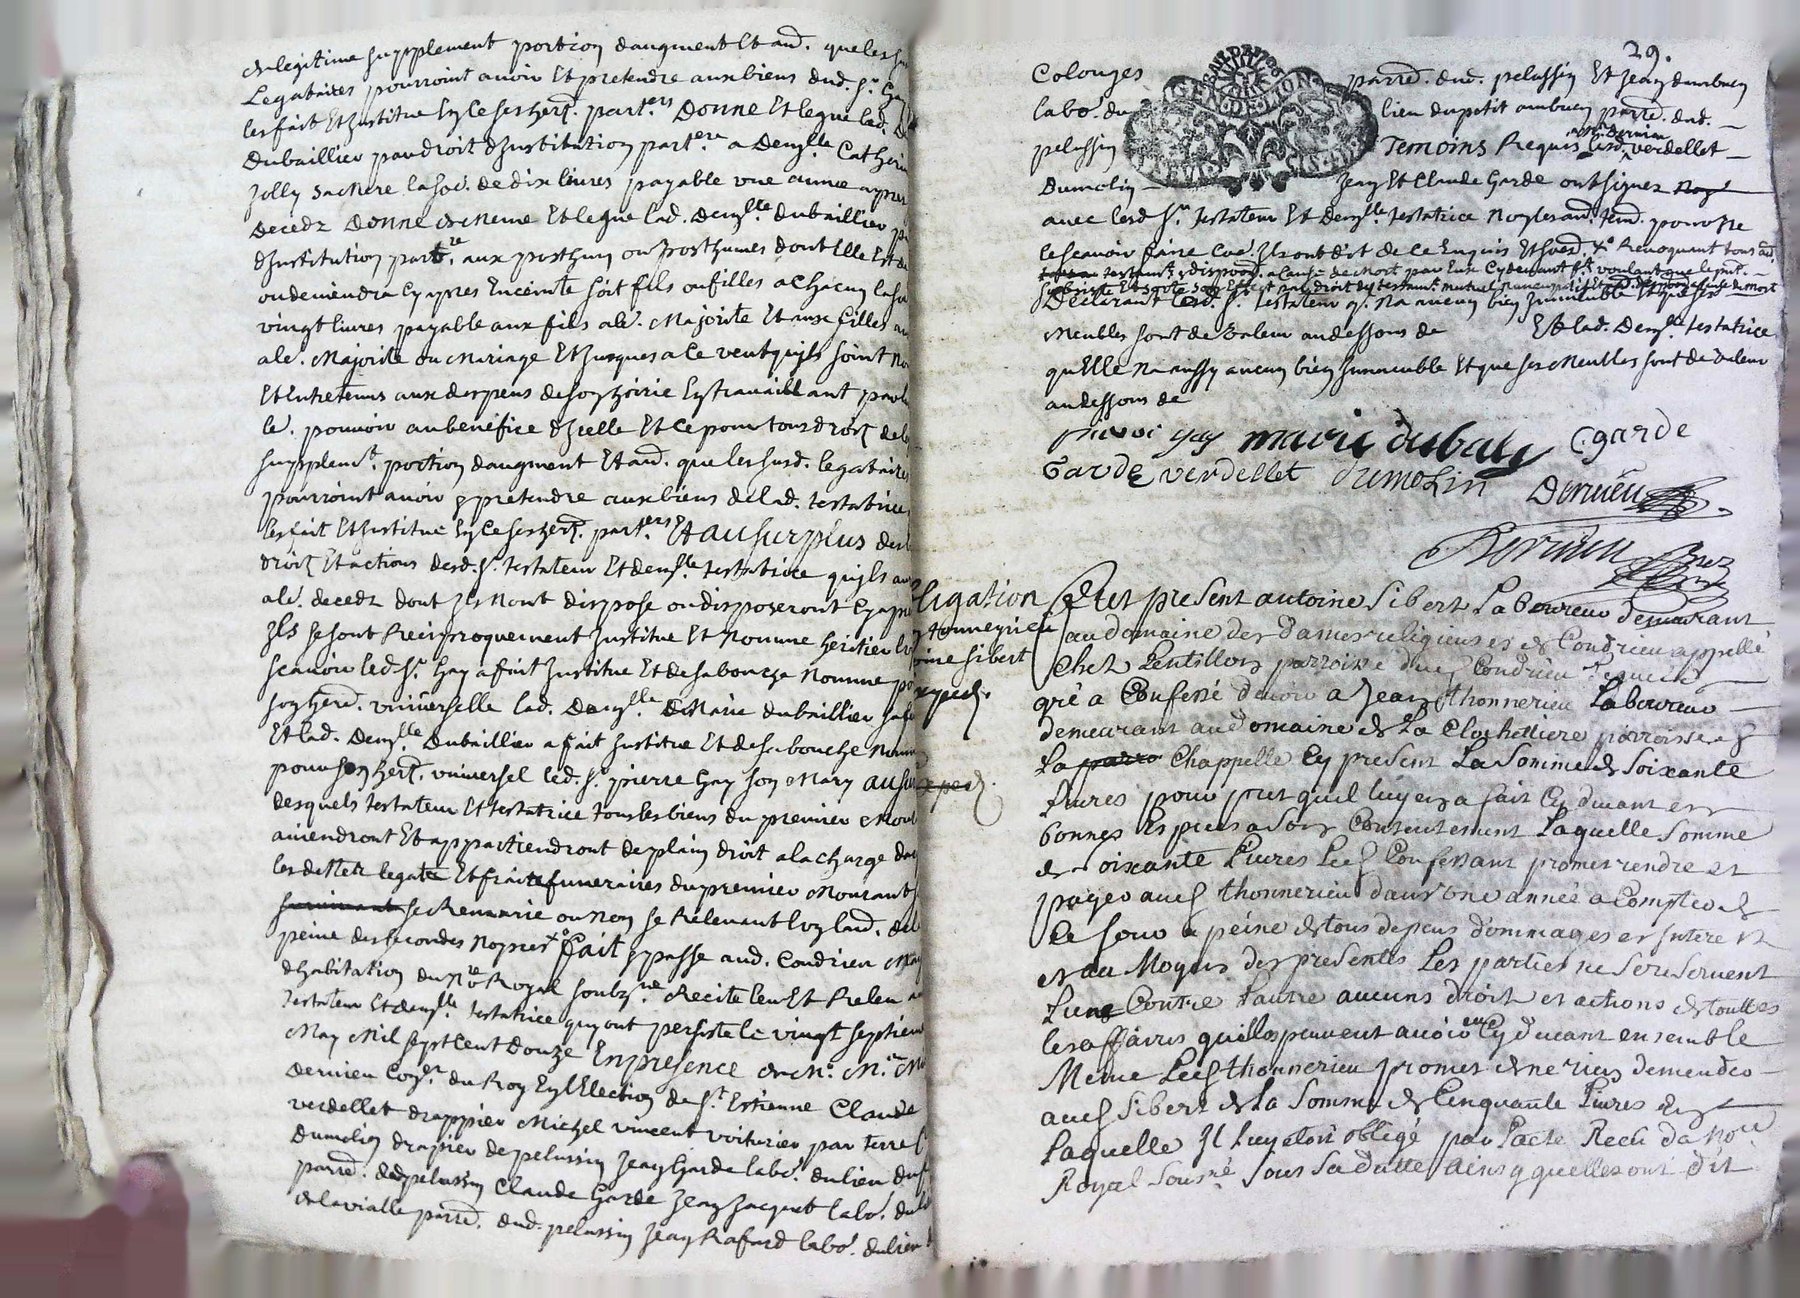 de legitime supplement portion daugment Et aud. que les su
Legataires pourroint avoir Et pretendre aux biens dud. Sr. Gay
les fait Et Institue En ce ses hert. parters Donne Et legue lad. D
Dubaillier par droit dInstitution partere a Demlle Catherin
Jolly sa Mere la so. de dix livres payable une annee apres
Decedz Donne de Meme Et legue lad. Demlle dubaillier p
dInstitution partre. aux posthum ou Posthumes dont Elle Est
ou deviendra Cy apres Enceinte soit fils ou filles a chacun la so
vingt livres payable aux fils a le. Majorite Et aux filles
a le. Majorite ou Mariage Et Jusques a Ce veut quils soint No
Et Entretenus aux despens de son hoirie En travaillant po
le. pouvoir au benefice dIcelle Et Ce pour tous droits de
supplemt. portion daugment Et aud. que les susd. legataires
pourroint avoir & pretendre aux biens de lad. testatrice
les fait Et Institue En ce ses hert. parters Et au surplus des
droits Et actions desd. Sr. testateur Et demlle testatrice quils
a le. decedz dont Ils Nont dispose ou disposeront Cy apres
Ils se sont Reciproquement Institue Et Nomme heritier
scavoir led. Sr. Gay a fait Institue Et de sa bouche Nomme po
son hered. universelle lad. Demlle Marie dubaillier sa
Et lad. Demlle Dubaillier a fait Institue Et de sa bouche Nomm
pour son hert. universel led. Sr. pierre Gay son Mary au
desquels testateur Et testatrice tous les biens du premier Mour
aviendront Et appartiendront de plain droit a la charge de
les dettes legats Et frais funeraires du premier Mourant
survivant se Remarie ou Non se Relevant lung laud. de
peine des secondes Nopces Fait & passe aud. Condrieu
dhabitation du Nre Royal soubzne. Recite leu Et Releu
testateur Et demlle testatrice quy ont persiste le vingt septiem
May Mil sept cent Douze En presence de Me. Me.
Dervieu Coner. du Roy En lElection de St. Estienne Claude
verdellet drappier Michel vincent voiturier par terre
Dumolin drapier de pelussin Jean Garde labo. du lieu du
parre. de pelussin Claude Garde Jean Jacquet labo. du
de la vialle parre. dud. pelussin Jean Rafard labo. du lieu
29.
Colonges parred. dud. pelussin Et Jean
labo. du lieu du petit parre. dud.
pelussin Temoins Requis lesd. Mr. Dervieu verdellet
Dumolin Jean Et Claude Garde ont signez
avec lesd. Sr. testateur Et Demlle testatrice Non les aud. tem. pour Ne
le scavoir faire Ils ont dit de Ce Enquis Et Revoquant tous
Declarant led. Sr. testateur q. Na aucun bien Immeuble Et que ses
Meubles sont de valeur au dessous de Et lad. Demlle testatrice
quElle Na aussy aucun bien Immeuble Et que ses Meubles sont de valeur
au dessous de
gay marie dubaly C garde
Garde verdellet dumolin Dervieu
Dervieu
ligation
thonnerieu
oine sibert
Exped.
Fut present antoine Sibert Laboureur demeurant
au domaine des dames religieuses de Condrieu appellé
Chez Lentillon parroisse dud. Condrieu
gré a Confessé devoir a Jean thonnerieu Laboureur
demeurant au Domaine de La Clochettiere parroisse de
La parro Chappelle Cy present La Somme de Soixante
Livres pour prest quil luy en a fait Cy devant en
bonnes Especes a son Contentement Laquelle Somme
de Soixante Livres Led. Confessant promet rendre et
payer aud. thonnerieu dans une année a Compter de
Ce Jour a peine de tous depens dommages et Interest
et au Moyen des presentes Les parties ne se reservent
Lune Contre Lautre aucuns droits et actions de touttes
les affaires quils peuvent avoir eue Cy devant ensemble
Meme Led. thonnerieu promet de ne rien demander
aud. Sibert de La Somme de Cinquante Livres de
Laquelle Il luy etoit obligé par Lacte Receu du Nore
Royal Sousné Sous Sa datte ainsy quelles ont dit